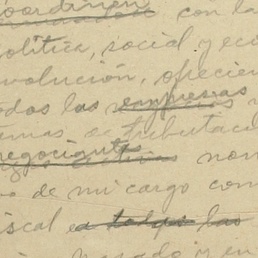 coordinen
con la
política, social y eco
evolución, ofrecien
odas las empresas
amas de tributac
negociantes non
de mi cargo com
iscal ea todas las
pasado y en